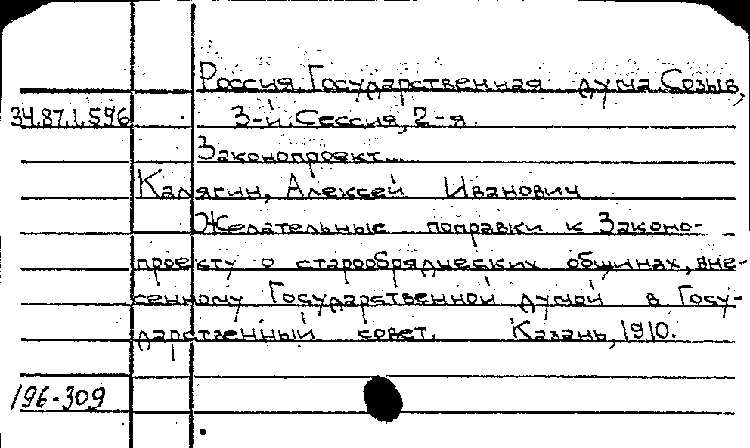 Россия. Государственная дума. Созыв,
34.87.1.596 3-й. Сессия, 2-я.
Законопроект...
Калягин, Алексей Иванович
Желательные поправки к Законо-
проекту о старообрядческих общинах, вне-
сенному Государственной думой в Госу-
дарственный совет. Казань, 1910.
196-309